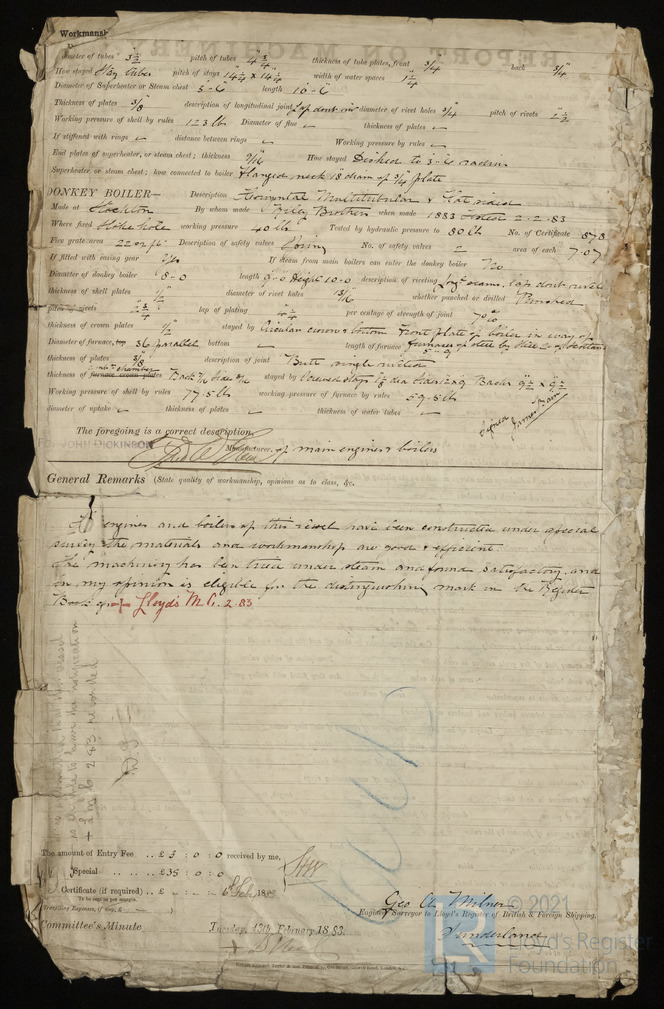 Workmanship
Diameter of tubes 3 1/2" pitch of tubes 4 3/4" thickness of tube plates, front 3/4" back 3/4"
How stayed Stay tubes pitch of stays 14 1/4" x 14 1/4" width of water spaces 1 1/4"
Diameter of Superheater or Steam chest 5-6 length 10-6
Thickness of plates 3/8" description of longitudinal joint Lap doub riv diameter of rivet holes 3/4" pitch of rivets 2 1/2"
Working pressure of shell by rules 123 lb Diameter of flue thickness of plates
If stiffened with rings distance between rings Working pressure by rules
End plates of superheater, or steam chest; thickness 9/16" How stayed Dished to 3-6 radius
Superheater or steam chest; how connected to boiler Flanged neck 18" diam of 3/4" plate
DONKEY BOILER— Description Horizontal Multitubular & flat sided
Made at Stockton By whom made Riley Brothers when made 1883 tested 2-2-83
Where fixed Stokehole working pressure 40 lb Tested by hydraulic pressure to 80 lb No. of Certificate 878
Fire grate area 22 sq ft Description of safety valves Spring No. of safety valves 2 area of each 7.07
If fitted with easing gear Yes If steam from main boilers can enter the donkey boiler No
Diameter of donkey boiler 8-0 length 9-0 Height 10-0 description of riveting Longl seams, lap doub rivetd
thickness of shell plates 1/2" diameter of rivet holes 13/16" whether punched or drilled Punched
pitch of rivets 2 3/4" lap of plating 4 1/4" per centage of strength of joint 70%
thickness of crown plates 1/2" stayed by Circular crown & bottom Front plate of boiler in way of
Diameter of furnace, top 36 parallel bottom length of furnace furnaces of steel by Steel Co of Scotland 5-9
thickness of plates 3/8" description of joint Butt single riveted
thickness of furnace crown plates combn chamber Back 7/16 Sides 7/16 stayed by Screwed stays
Working pressure of shell by rules 77.5 lb working pressure of furnace by rules 59.5 lb
diameter of uptake thickness of plates thickness of water tubes
Signed James Bain
The foregoing is a correct description,
JOHN DICKINSON Manufacturer, of main engines & boilers
General Remarks (State quality of workmanship, opinions as to class, &c.
The engines and boilers of this vessel have been constructed under special
survey the materials and workmanship are good & efficient.
The machinery has been tried under steam and found satisfactory, and
in my opinion is eligible for the distinguishing mark in the Register
Book of + Lloyd's M.C. 2.83
The amount of Entry Fee .. £ 3 : 0 : 0 received by me,
Special .. £35 : 0 : 0
Certificate (if required) .. £ 6th Feb 1883
To be sent as per margin.
(Travelling Expenses, if any, £
Geo A Milner
Engineer Surveyor to Lloyd's Register of British & Foreign Shipping.
Sunderland
Committee's Minute Tuesday, 13th February 1883.
© 2021
Lloyd's Register
Foundation